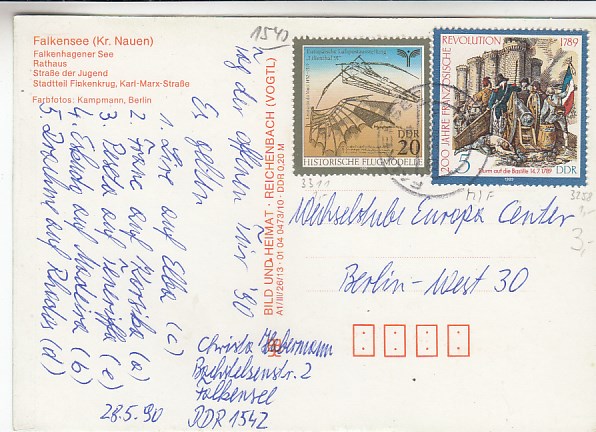 Falkensee (Kr. Nauen)
Falkenhagener See
Rathaus
Straße der Jugend
Stadtteil Finkenkrug, Karl-Marx-Straße
Farbfotos: Kampmann, Berlin
BILD UND HEIMAT · REICHENBACH (VOGTL)
A1/III/26/13 · 01 04 0473/10 · DDR 0,20 M
Tag der offenen Tür '90
Es gelten
1. Lire auf Elba (c)
2. Franc auf Korsika (a)
3. Peseta auf Teneriffa (e)
4. Escudo auf Madeira (b)
5. Drachme auf Rhodos (d)
28.5.90
Christa Habermann
Bachstelzenstr. 2
Falkensee
DDR 1542
1543
"Lilienthal '91"
DDR
20
HISTORISCHE FLUGMODELLE
200 JAHRE FRANZÖSISCHE REVOLUTION 1789
Sturm auf die Bastille 14.7.1789
5 DDR
1989
3311
MIF
3258
3,-
Wechselstube Europa Center
Berlin-West 30